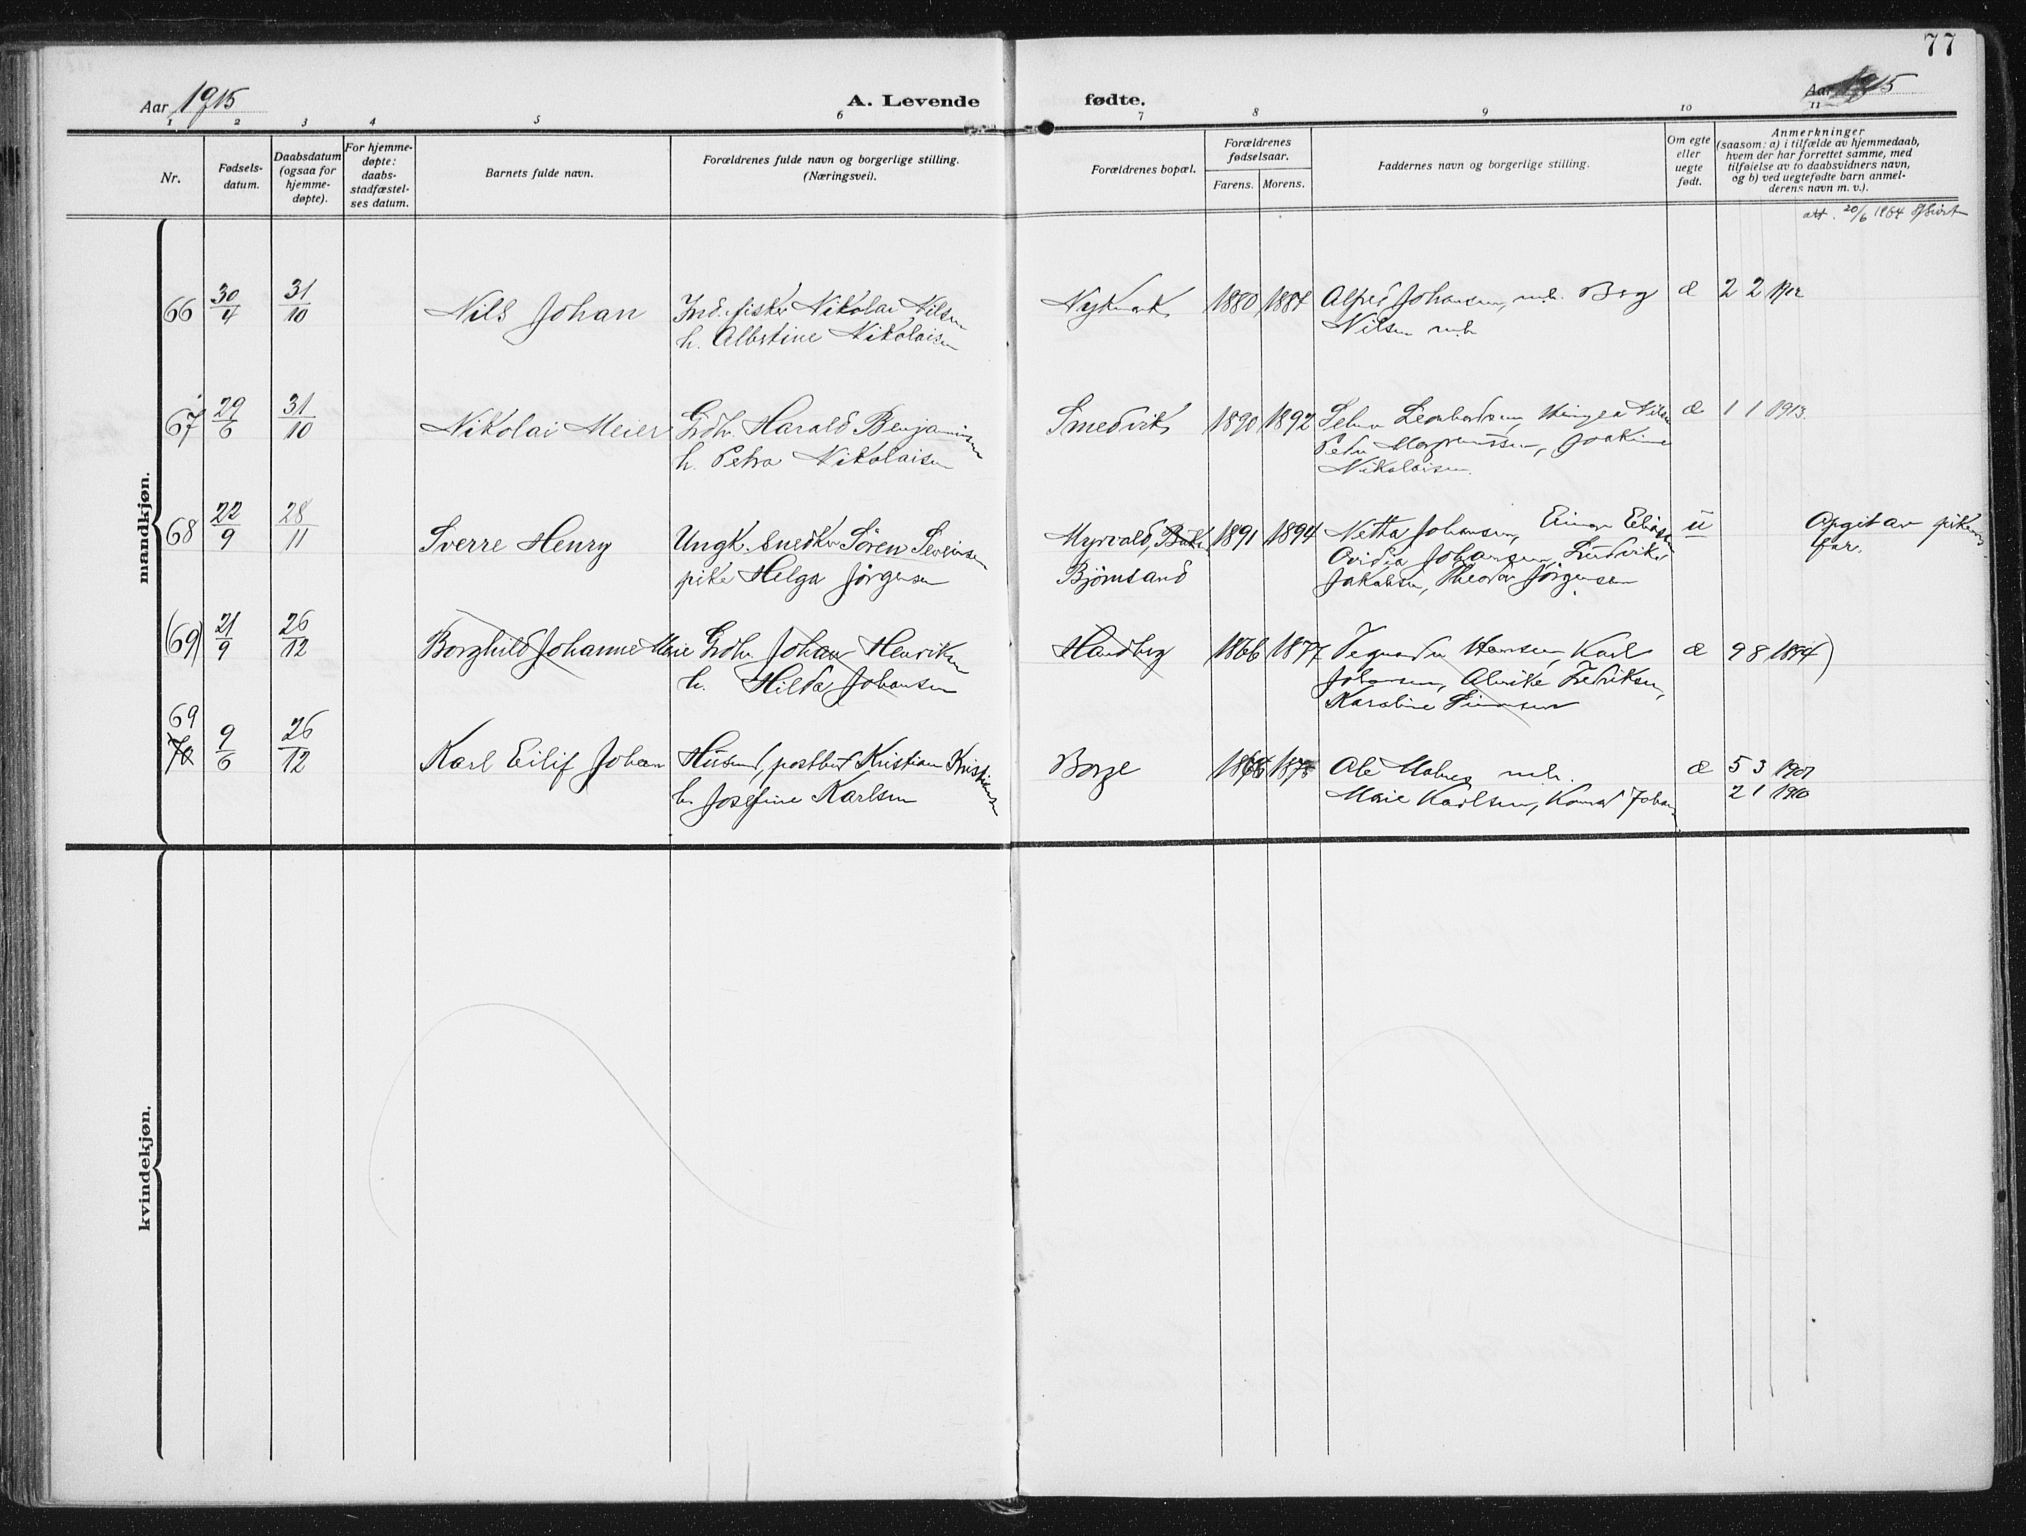 77
Aar 1915
A. Levende fødte.
Aar 1915
1 2 3 4 5 6 7 8 9 10 11
Nr.
Fødsels-
datum.
Daabsdatum
(ogsaa for
hjemme-
døpte).
For hjemme-
døpte:
daabs-
stadfæstel-
ses datum.
Barnets fulde navn.
Forældrenes fulde navn og borgerlige stilling.
(Næringsvei).
Forældrenes bopæl.
Forældrenes
fødselsaar.
Farens. Morens.
Faddernes navn og borgerlige stilling.
Om egte
eller
uegte
født.
Anmerkninger
(saasom: a) i tilfælde av hjemmedaab,
hvem der har forrettet samme, med
tilføielse av to daabsvidners navn,
og b) ved uegtefødte barn anmel-
derens navn m. v.).
att. 20/6 1984
mandkjøn.
66 30/4 31/10 Nils Johan Ind. fisker Nikolai Nilsen 1880 1884 Alfred Johansen, Berg æ 2 2
h. Albertine Nikolaisen Nilsen
67 29/6 31/10 Nikolai Meier Grdbr. Harald Benjaminsen Smedvik 1890 1892 Nilsen æ 1 1 1913.
h. Petra Nikolaisen Joakime
Nikolaisen.
68 22/9 28/11 Sverre Henry Ungk. snedker Søren Severinsen Myrvold, 1891 1894 Netha Johansen, Eliassen u Opgit av pikens
pike Helga Jørgensen Bjørnsand Ovidia Johansen, Ludvik far.
Jakobsen, Theodor Jørgensen
(69) 21/9 26/12 Borghild Johanne Marie Grdbr. Johan Henriksen Handberg 1866 1877 Hansen, Karl æ 9 8 1894)
h. Hilda Johansen Johansen, Fredriksen,
Karoline Simonsen
69
70 9/6 26/12 Karl Eilif Johan Husmd, postbud Kristian Kristiansen Borge 1875 Ole æ 5 3 1907
h. Josefine Karlsen Marie Karlsen, Konrad Johan 2 1 1910
kvindekjøn.